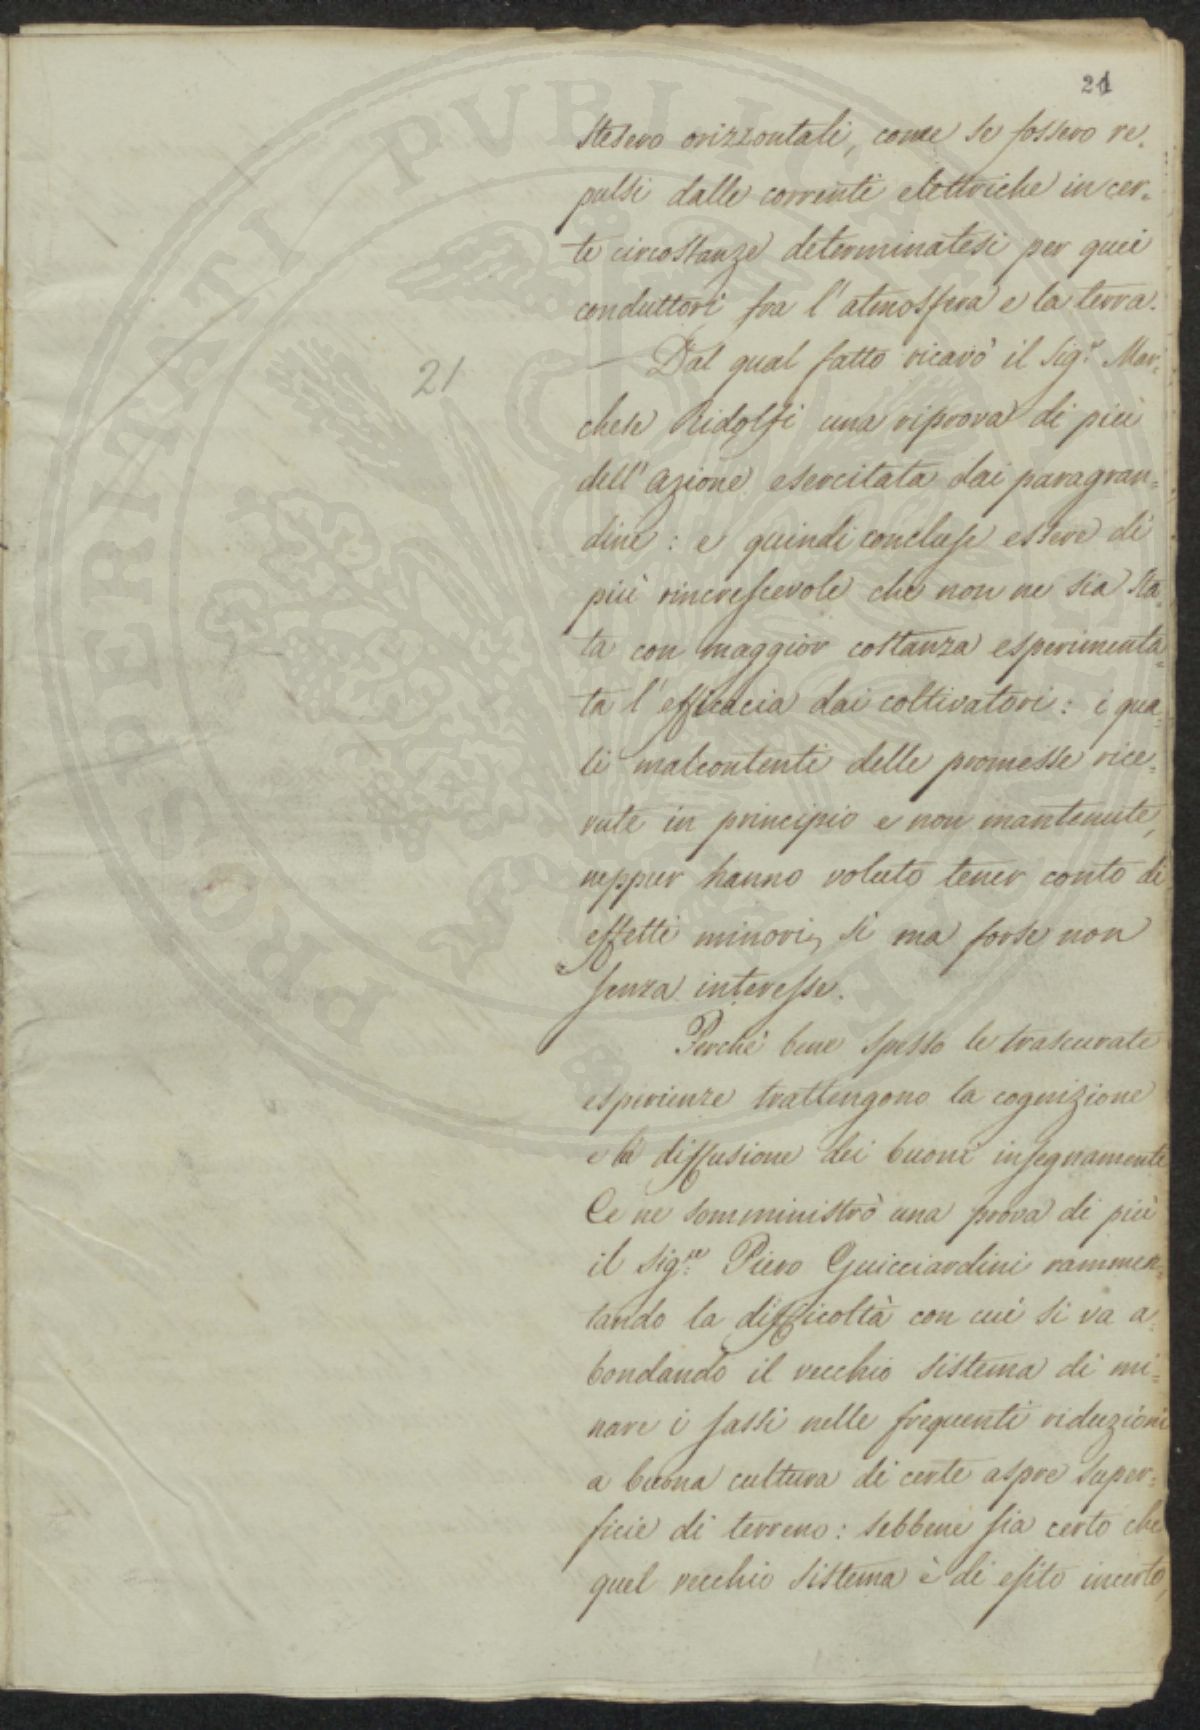 21
stesero orizzontali, come se fossero re-
pulsi dalle correnti elettriche in cer-
te circostanze determinatesi per quei
conduttori fra l'atmosfera e la terra.
— Dal qual fatto ricavò il Sig.r Mar-
chese Ridolfi una riprova di più
21
dell'azione esercitata dai paragran-
dini: e quindi concluse essere di
più rincrescevole che non ne sia sta-
ta con maggior costanza esperimenta-
ta l'efficacia dai coltivatori: i qua-
li malcontenti delle promesse rice-
vute in principio e non mantenute,
neppur hanno voluto tener conto di
effetti minori, sì ma forse non
senza interesse.
Perchè bene spesso le trascurate
esperienze trattengono la cognizione
e la diffusione dei buoni insegnamenti
Ce ne somministrò una prova di più
il Sig.re Piero Guicciardini rammen-
tando la difficoltà con cui si va a-
bondando il vecchio sistema di mi-
nare i sassi nelle frequenti riduzioni
a buona cultura di certe aspre super-
ficie di terreno: sebbene sia certo che
quel vecchio sistema è di esito incerto,
PROSPERITATI PUBLICAE AUGENDAE